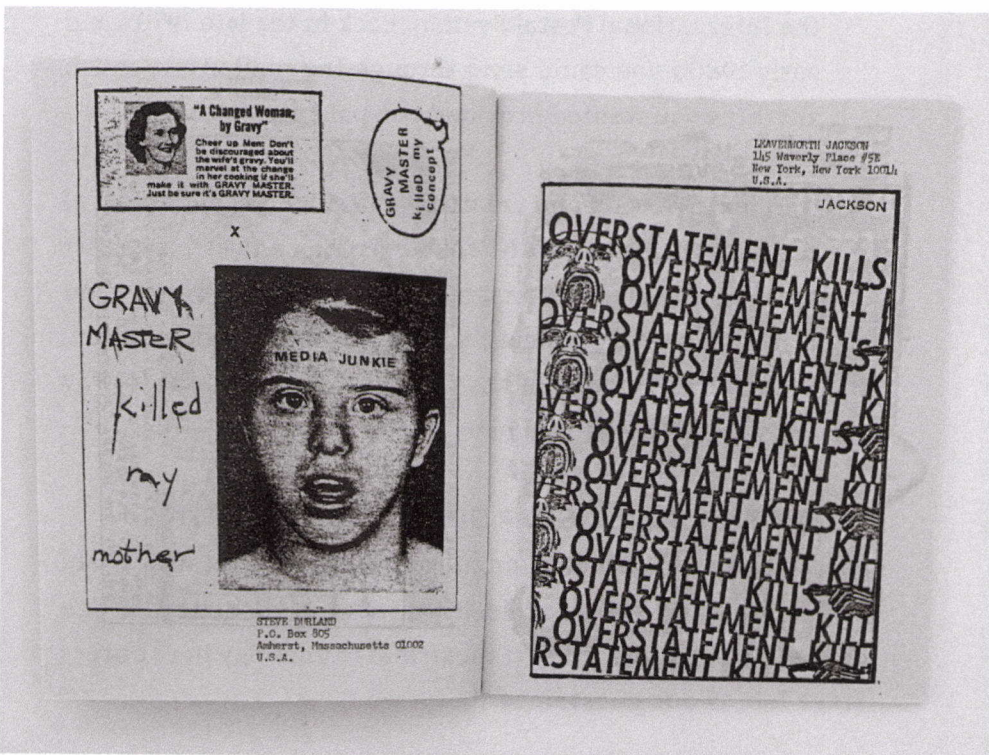 "A Changed Woman,
by Gravy"
Cheer up Men: Don't
be discouraged about
the wife's gravy. You'll
marvel at the change
in her cooking if she'll
make it with GRAVY MASTER.
Just be sure it's GRAVY MASTER.
GRAVY
MASTER
killeD my
concept
x
GRAVY
MASTER
killed
my
mother
MEDIA JUNKIE
STEVE DURLAND
P.O. Box 805
Amherst, Massachusetts 01002
U.S.A.
LEAVENWORTH JACKSON
145 Waverly Place #5E
New York, New York 10014
U.S.A.
JACKSON
OVERSTATEMENT KILLS
OVERSTATEMENT
OVERSTATEMENT K
OVERSTATEMENT KILLS
OVERSTATEMENT K
OVERSTATEMENT K
OVERSTATEMENT KILLS
OVERSTATEMENT KI
OVERSTATEMENT KIL
ERSTATEMENT KILLS
OVERSTATEMENT KIL
OVERSTATEMENT KIL
ERSTATEMENT KILLS
OVERSTATEMENT KILL
OVERSTATEMENT KILL
RSTATEMENT KILLS